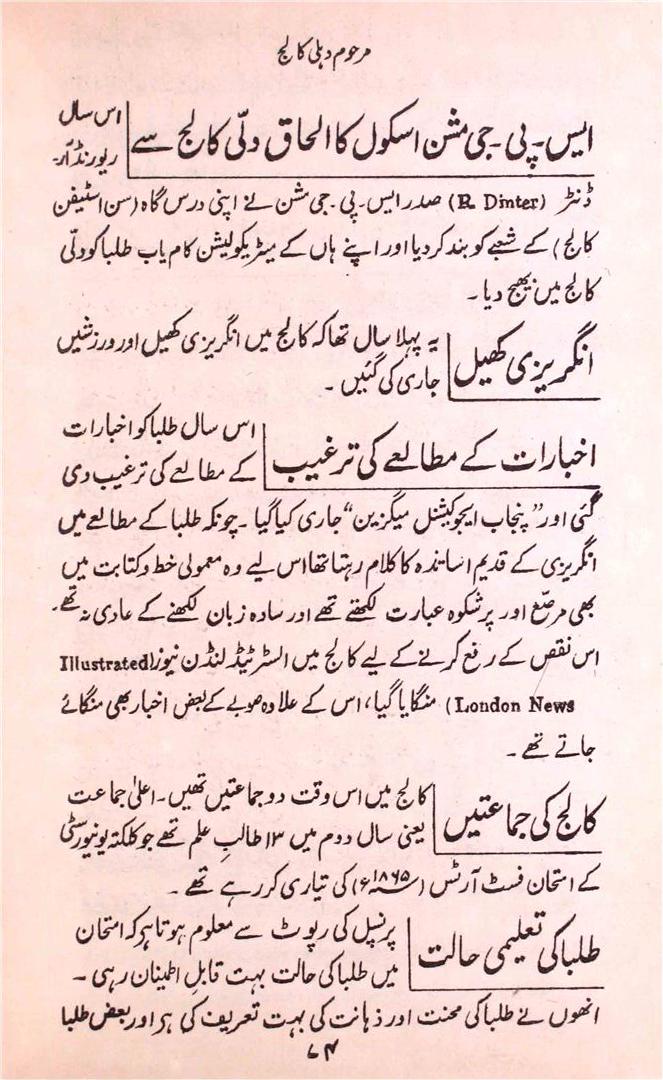 مرحوم دہلی کالج
ایس۔پی۔جی مشن اسکول کا الحاق دلّی کالج سے
اس سال
ریورنڈ آر۔
ڈنٹر (R. Dinter) صدر ایس۔پی۔جی مشن نے اپنی درس گاہ (سن اسٹیفن
کالج) کے شعبے کو بند کردیا اور اپنے ہاں کے میٹریکولیشن کام یاب طلبا کو دلّی
کالج میں بھیج دیا۔
انگریزی کھیل
یہ پہلا سال تھا کہ کالج میں انگریزی کھیل اور ورزشیں
جاری کی گئیں۔
اخبارات کے مطالعے کی ترغیب
اس سال طلبا کو اخبارات
کے مطالعے کی ترغیب دی
گئی اور "پنجاب ایجوکیشنل میگزین" جاری کیا گیا۔ چونکہ طلبا کے مطالعے میں
انگریزی کے قدیم اساتذہ کا کلام رہتا تھا اس لیے وہ معمولی خط و کتابت میں
بھی مرصّع اور پرشکوہ عبارت لکھتے تھے اور سادہ زبان لکھنے کے عادی نہ تھے۔
اس نقص کے رفع کرنے کے لیے کالج میں السٹریٹیڈ لنڈن نیوز (Illustrated
London News) منگایا گیا، اس کے علاوہ صوبے کے بعض اخبار بھی منگائے
جاتے تھے۔
کالج کی جماعتیں
کالج میں اس وقت دو جماعتیں تھیں۔ اعلیٰ جماعت
یعنی سال دوم میں ۱۳ طالبِ علم تھے جو کلکتہ یونیورسٹی
کے امتحان فسٹ آرٹس (۱۸۶۵ء) کی تیاری کررہے تھے۔
طلبا کی تعلیمی حالت
پرنسپل کی رپوٹ سے معلوم ہوتا ہر کہ امتحان
میں طلبا کی حالت بہت قابلِ اطمینان رہی۔
انھوں نے طلبا کی محنت اور ذہانت کی بہت تعریف کی ہر اور بعض طلبا
۷۴